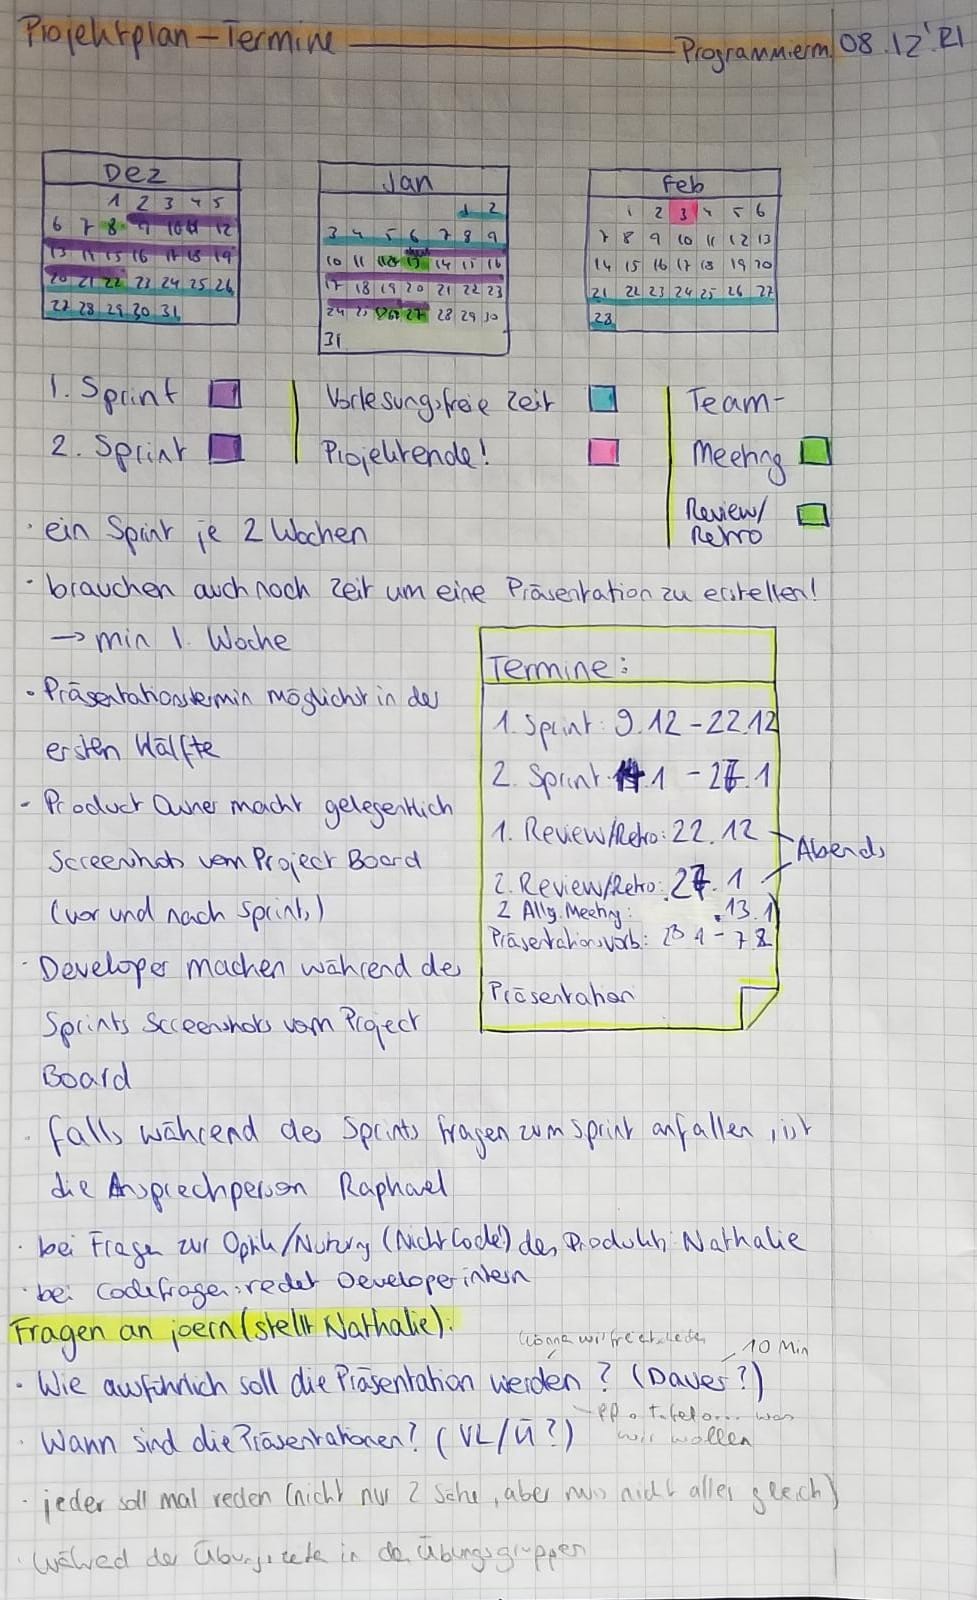 Projektplan – Termine
Programmierm. 08.12'21
Dez
1 2 3 4 5
6 7 8 9 10 11 12
13 14 15 16 17 18 19
20 21 22 23 24 25 26
27 28 29 30 31
Jan
1 2
3 4 5 6 7 8 9
10 11 13 14 15 16
17 18 19 20 21 22 23
24 25 26 27 28 29 30
31
Feb
1 2 3 4 5 6
7 8 9 10 11 12 13
14 15 16 17 18 19 20
21 22 23 24 25 26 27
28
1. Sprint
2. Sprint
Vorlesungsfreie Zeit
Projektende!
Team-
Meeting
Review/
Retro
· ein Sprint je 2 Wochen
· brauchen auch noch Zeit um eine Präsentation zu erstellen!
→ min 1. Woche
· Präsentationstermin möglichst in der
ersten Hälfte
- Product Owner macht gelegentlich
Screenshots vom Project Board
(vor und nach Sprints)
· Developer machen während des
Sprints Screenshots vom Project
Board
Termine:
1. Sprint: 9.12 – 22.12
2. Sprint .1 – 27.1
1. Review/Retro: 22.12
2. Review/Retro: 27.1
Abends
2 Allg. Meeting: 13.1
Präsentationsvorb.: 28 1 – 7 2
Präsentation
· falls während des Sprints fragen zum Sprint anfallen, ist
die Ansprechperson Raphael
· bei Fragen zur Optik/Nutzung (Nicht Code!) des Produkts: Nathalie
· bei Codefragen: redet Developer intern
Fragen an joern (stellt Nathalie):
können wir frei entscheiden
10 Min
· Wie ausführlich soll die Präsentation werden? (Dauer?)
PP o. Tafel o.... was
wir wollen
· Wann sind die Präsentationen? (VL/Ü?)
· jeder soll mal reden (nicht nur 2 Sätze, aber muss nicht alles gleich)
· Während der Übungszeiten in den Übungsgruppen